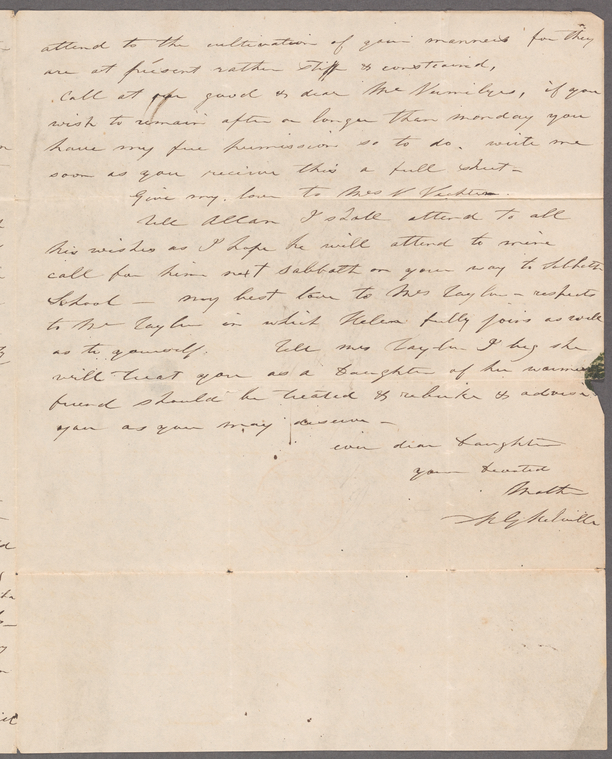 attend to the cultivation of your manners for they
are at present rather stiff & constrained,
Call at our good & dear Mr Vermilyes, if you
wish to remain after or longer than monday you
have my free permission so to do. write me
soon as you receive this a full sheet—
Give my love to Mrs V Vechten.
Tell Allan I shall attend to all
his wishes as I hope he will attend to mine
call for him next Sabbath on your way to Sabbath
School — my best love to Mrs Taylor — respects
to Mr Taylor in which Helen fully joins as well
as to yourself. Tell Mrs Taylor I beg she
will treat you as a Daughter of her warmest
friend should be treated & rebuke & advise
you as you may deserve —
ever dear Daughter
your devoted
Mother
M G Melville